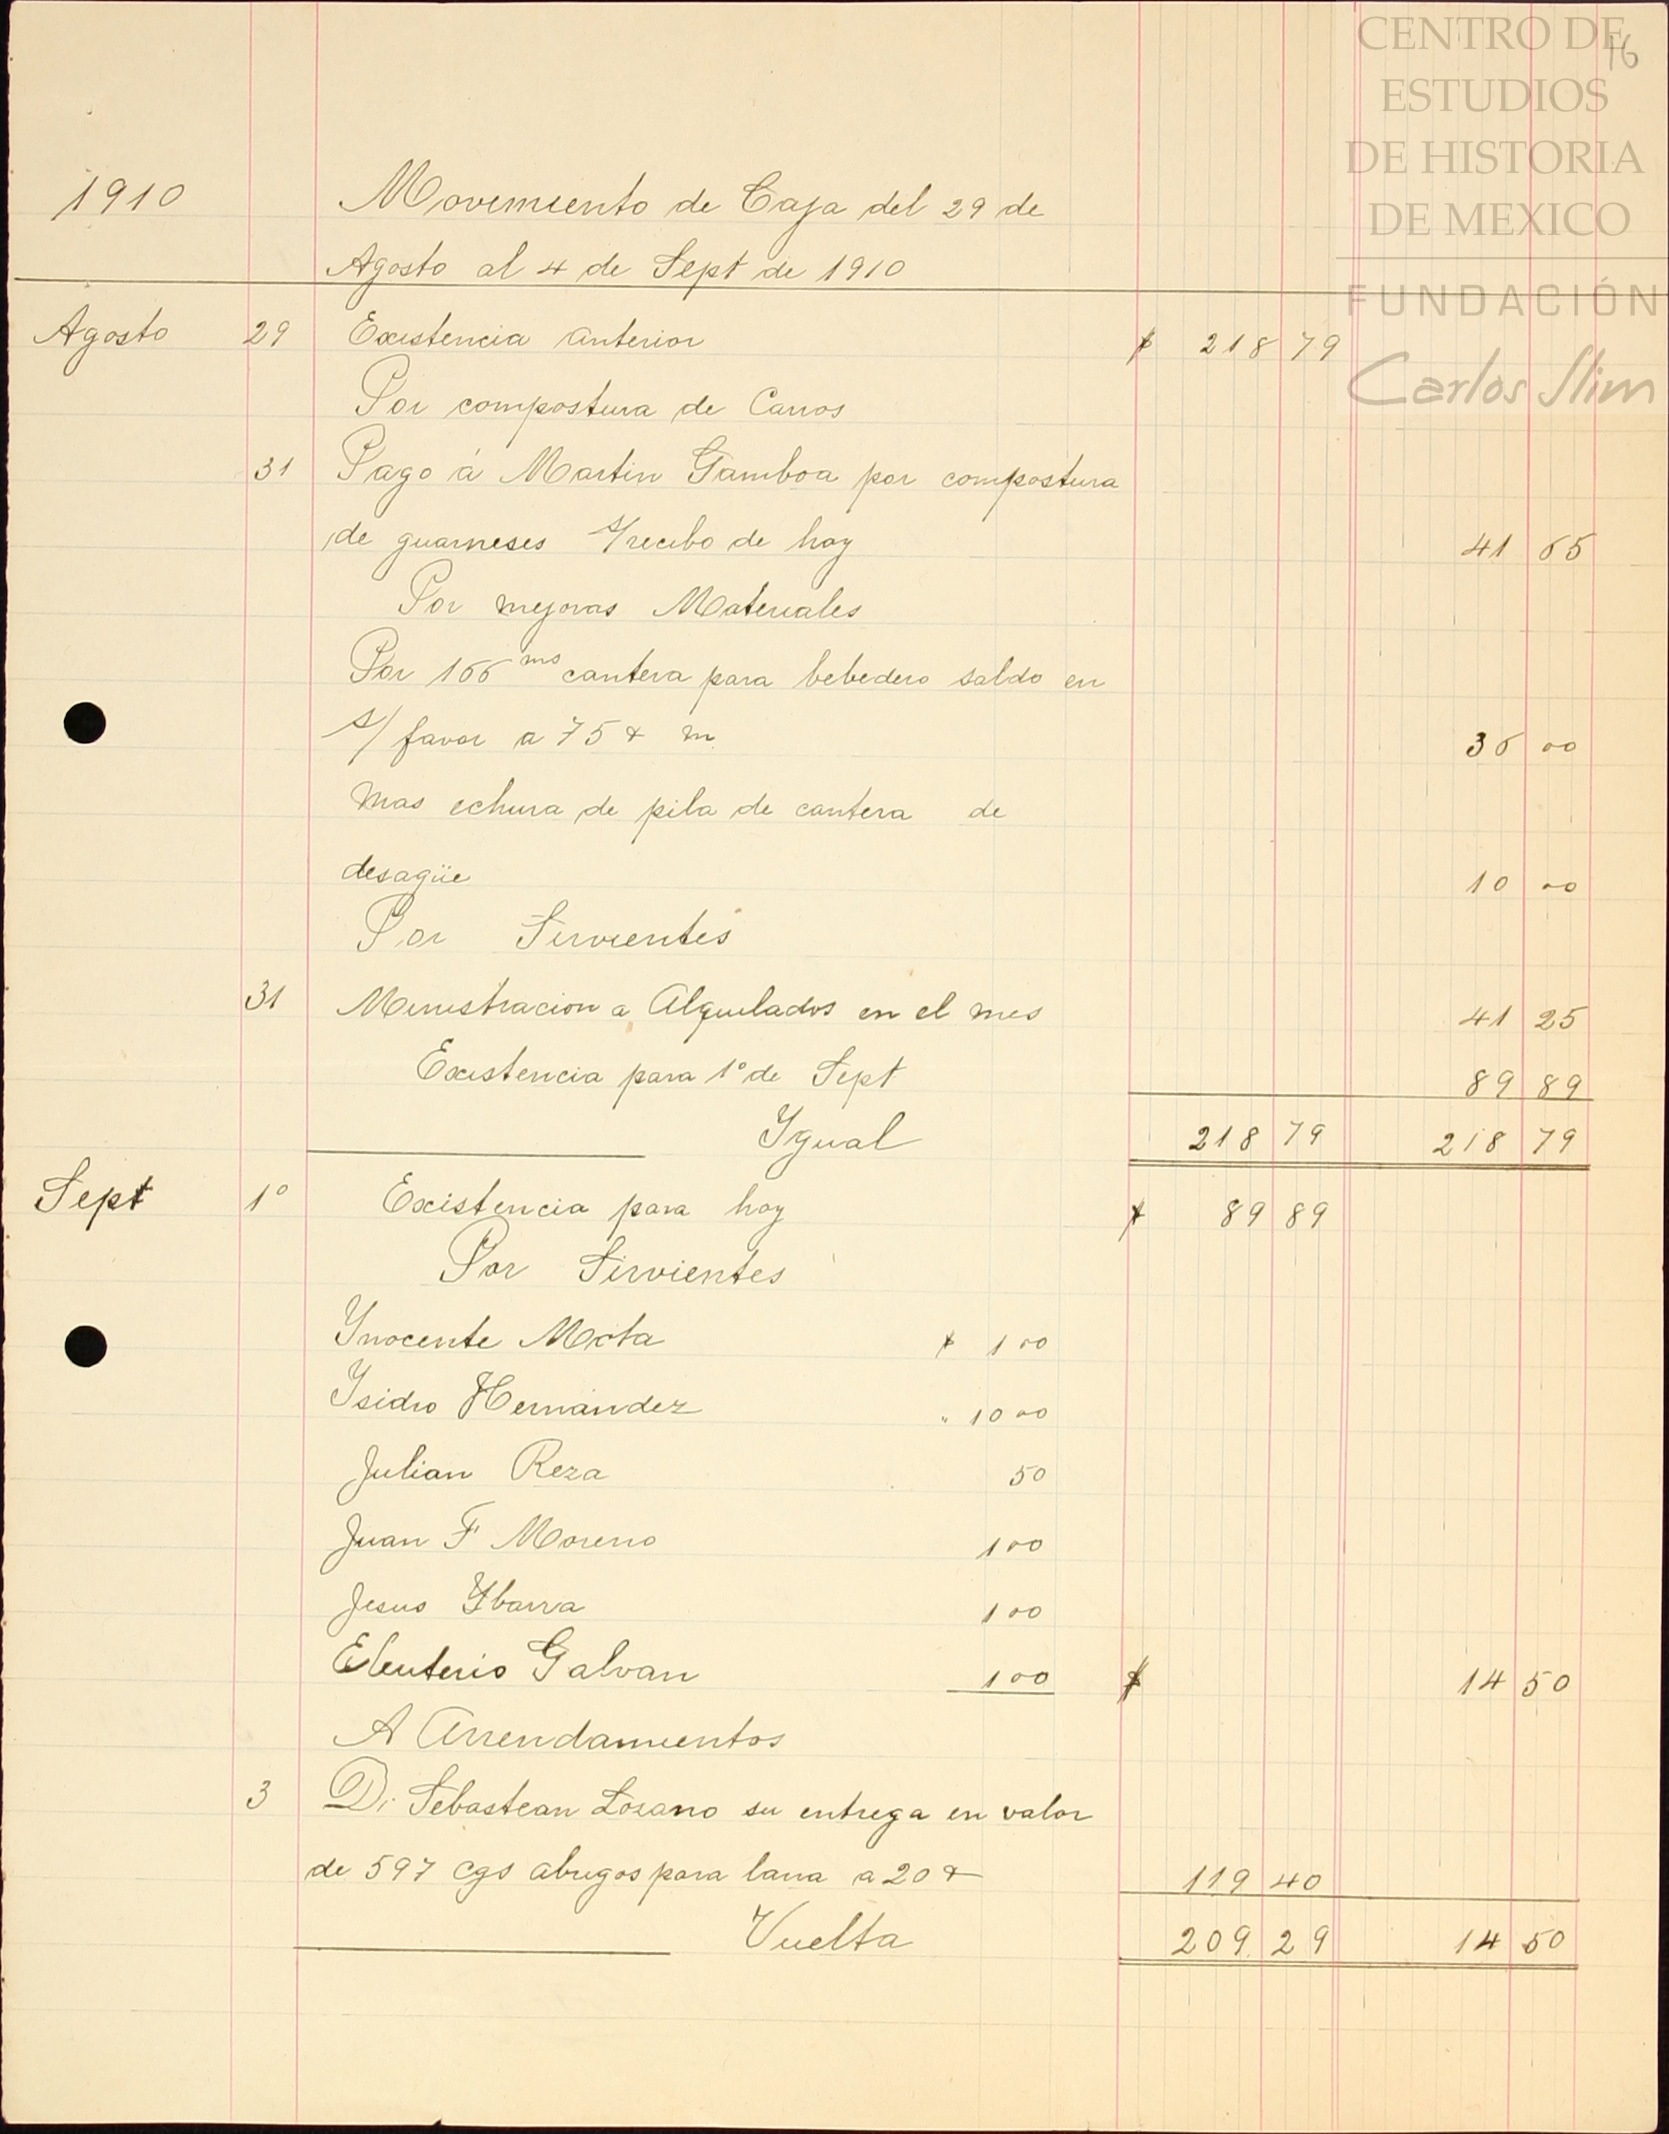 CENTRO DE
ESTUDIOS
DE HISTORIA
DE MEXICO
FUNDACIÓN
Carlos Slim
16
1910 Movimiento de Caja del 29 de
Agosto al 4 de Sept de 1910
Agosto 29 Existencia anterior $ 218 79
Por compostura de Carros
31 Pago á Martin Gamboa por compostura
de guarneses s/recibo de hoy 41 65
Por mejoras Materiales
Por 166 ms cantera para bebedero saldo en
s/ favor a 75 ¢ m 36 00
Mas echura de pila de cantera de
desagüe 10 00
Por Sirvientes
31 Ministracion a Alquilados en el mes 41 25
Existencia para 1º de Sept 89 89
Ygual 218 79 218 79
Sept 1º Existencia para hoy $ 89 89
Por Sirvientes
Ynocente Mota $ 1 00
Ysidro Hernández " 10 00
Julian Reza 50
Juan F Moreno 1 00
Jesus Ybarra 1 00
Eleuterio Galvan 1 00 $ 14 50
A Arrendamientos
3 D. Sebastian Lozano su entrega en valor
de 597 cgs abrigos para lana a 20 ¢ 119 40
Vuelta 209 29 14 50